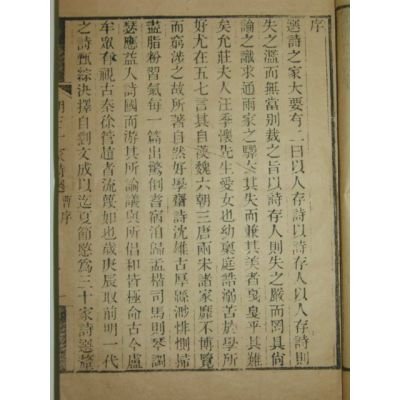 序
選詩之家大要有二曰以人存詩以詩存人以人存詩則
失之濫而無當別裁之旨以詩存人則失之嚴而罔具尙
論之識求通兩家之驛去其失而兼其美者戛戛乎其難
矣允莊夫人汪季懷先生愛女也幼稟庭誥溺苦於學所
好尤在五七言其自漢魏六朝三唐兩宋諸家靡不博覽
而窮涉之故所著自然好學齋詩沈雄古厚緜渺悱惻掃
盡脂粉習氣每一篇出驚倒耆宿洎歸孟楷司馬則琴調
瑟應益人詩國而游其所論議與所倡和皆極命古今盧
牟眾有視古秦徐管趙者流蔑如也歲庚辰取前明一代
之詩甄綜決擇自劉文成以迄夏節愍爲三十家詩選釐
明三十家詩選 曹序